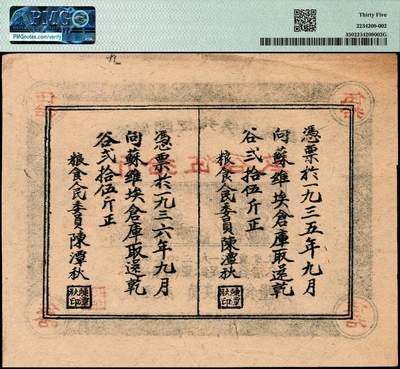 PMG
PMGnotes.com/verify
Thirty Five
2234209-002
3502234209002G
憑票於一九三五年九月
向蘇維埃倉庫取還乾
谷弍拾伍斤正
粮食人民委員陳潭秋
陳潭
秋印
憑票於一九三六年九月
向蘇維埃倉庫取還乾
谷弍拾伍斤正
粮食人民委員陳潭秋
陳潭
秋印